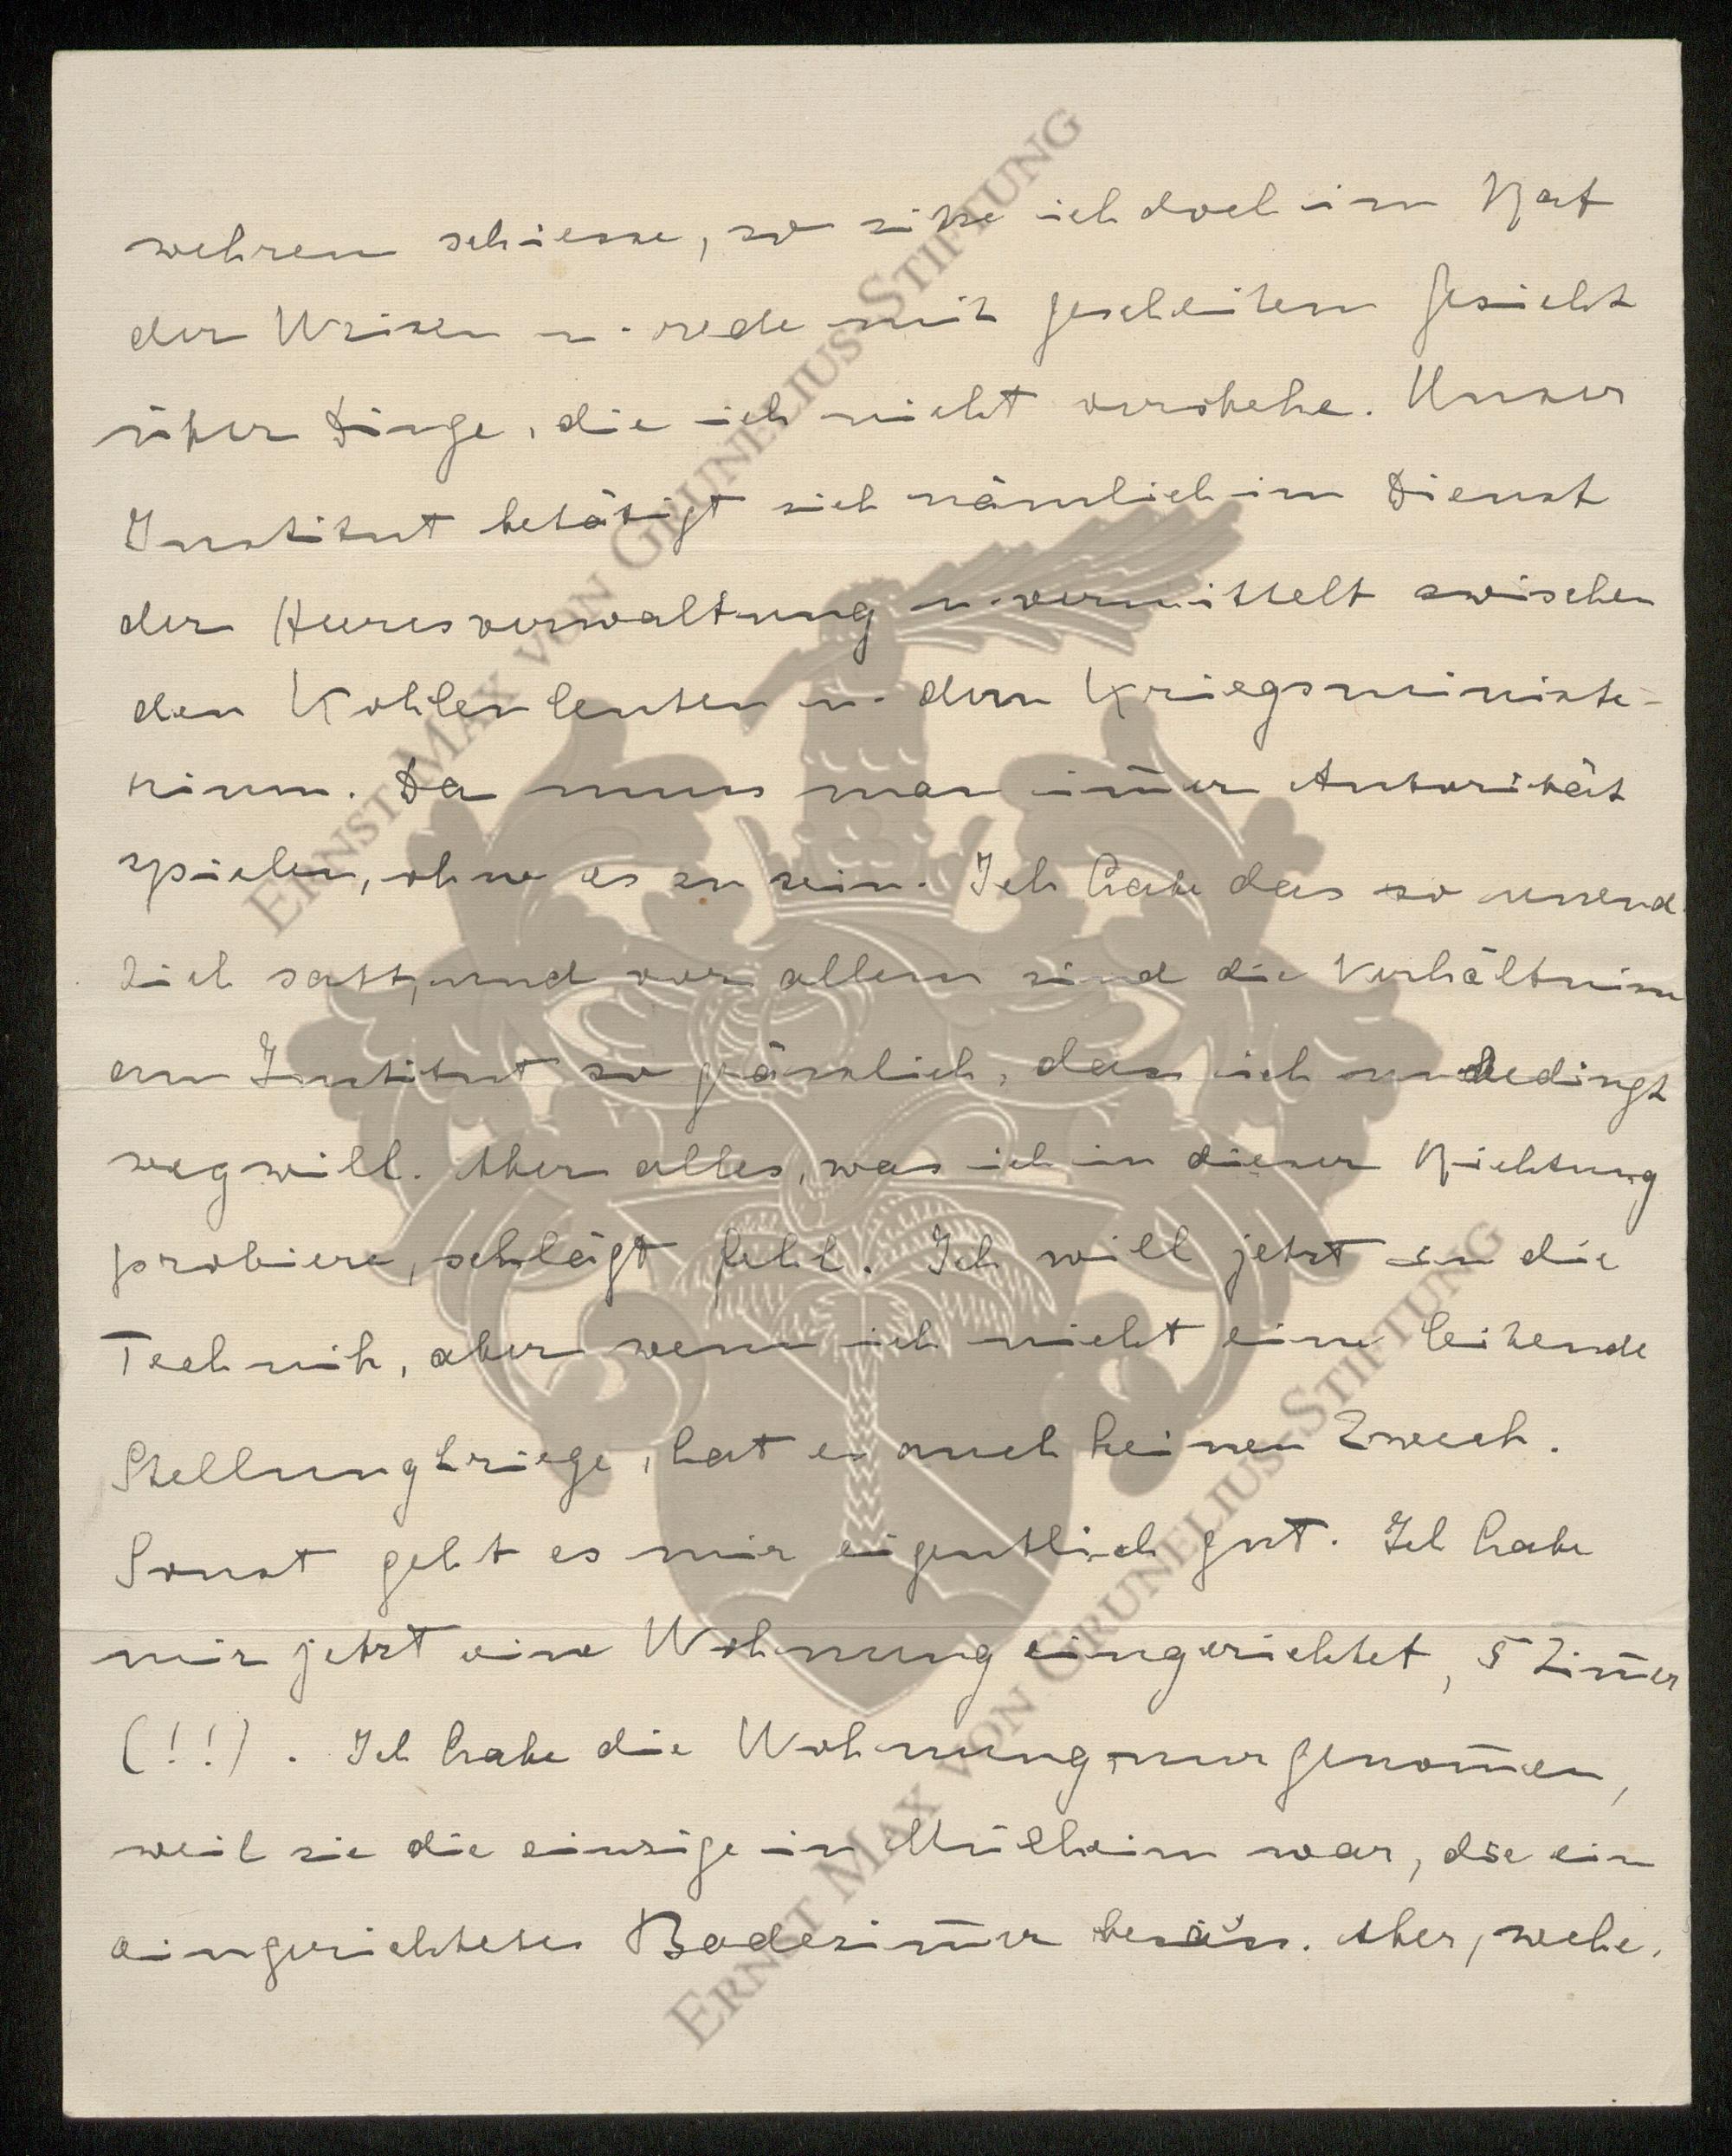 wehren schiesse, so sitze ich doch im Rat
der Weisen u. rede mit gescheitem Gesicht
über Dinge, die ich nicht verstehe. Unser
Institut betätigt sich nämlich im Dienst
der Heeresverwaltung u. vermittelt zwischen
den Kohlenleuten u. dem Kriegsministe-
rium. Da muss man im̄er Autorität
spielen, ohne es zu sein. Ich habe das so unend
lich satt, und vor allem sind die Verhältnisse
am Institut so grässlich, dass ich unbedingt
weg will. Aber alles, was ich in dieser Richtung
probiere, schlägt fehl. Ich will jetzt in die
Technik, aber wenn ich nicht eine leitende
Stellung kriege, hat es auch keinen Zweck.
Sonst geht es mir eigentlich gut. Ich habe
mir jetzt eine Wohnung eingerichtet, 5 Zim̄er
(!!). Ich habe die Wohnung nur genom̄en,
weil sie die einzige in Mülheim war, die ein
eingerichtetes Badezim̄er besass. Aber, wehe,
ERNST MAX VON GRUNELIUS-STIFTUNG
ERNST MAX VON GRUNELIUS-STIFTUNG